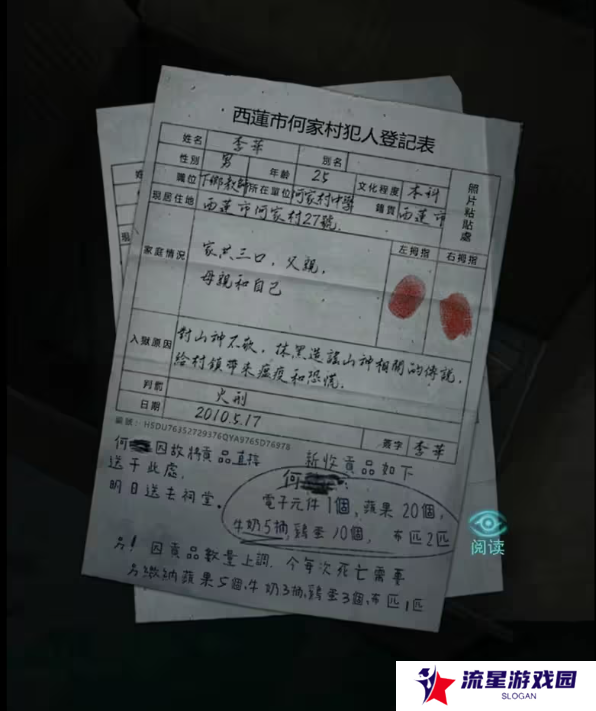 西蓮市何家村犯人登記表
姓名 李華 別名
性別 男 年齡 25 文化程度 本科
職位 下鄉教師 所在單位 何家村中學 籍貫 西蓮市
現居住地 西蓮市何家村27號
照片粘貼處
家庭情況 家共三口,父親,
母親和自己
左拇指 右拇指
入獄原因 對山神不敬,抹黑造謠山神相關的傳說,
給村鎮帶來瘟疫和恐慌,
判前 火刑
日期 2010.5.17 簽字 李華
編號:HSDU76352729376QYA9765D76978
何 因故將貢品直接
送于此處,
明日送去祠堂。
新收貢品如下
何
電子元件1個,蘋果20個,
牛奶5捅,鷄蛋10個, 布匹2匹
另!因貢品數量上調,今每次死亡需要
另繳納蘋果5個,牛奶3捅,鷄蛋3個,布匹1匹
阅读
流星游戏园
SLOGAN